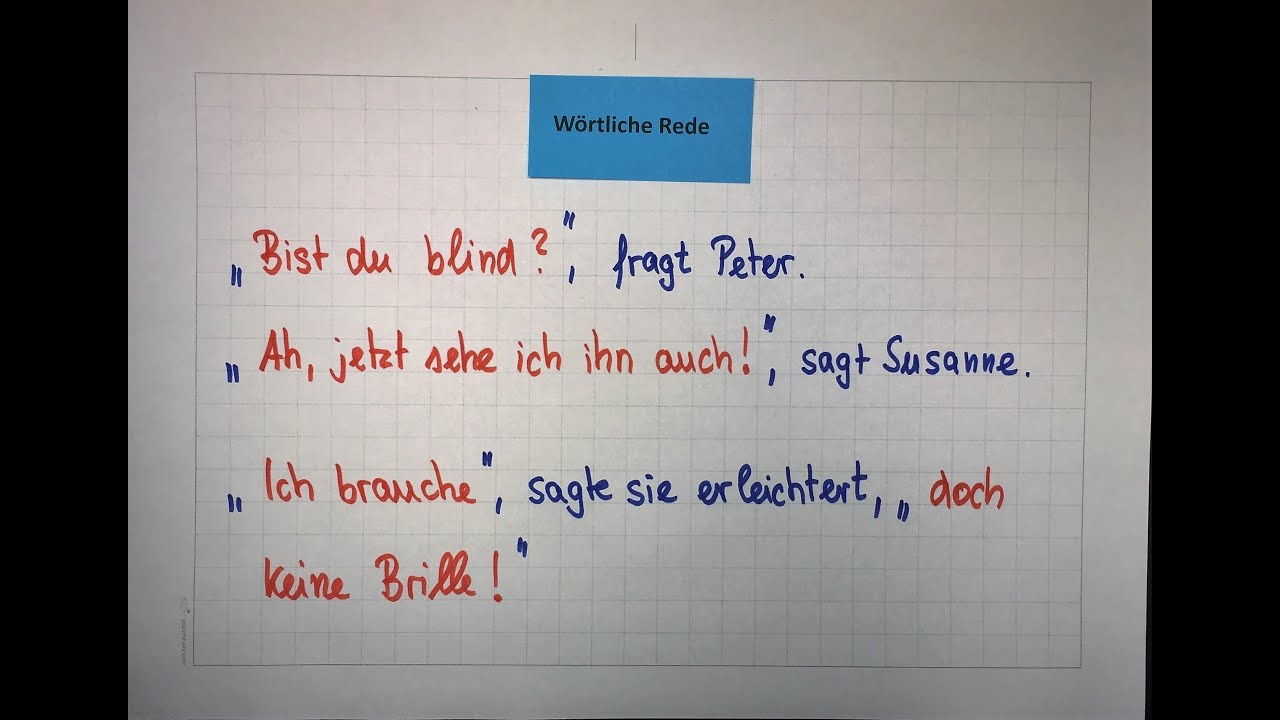 Wörtliche Rede
„Bist du blind?", fragt Peter.
„Ah, jetzt sehe ich ihn auch!", sagt Susanne.
„Ich brauche", sagte sie erleichtert, „doch
keine Brille!"